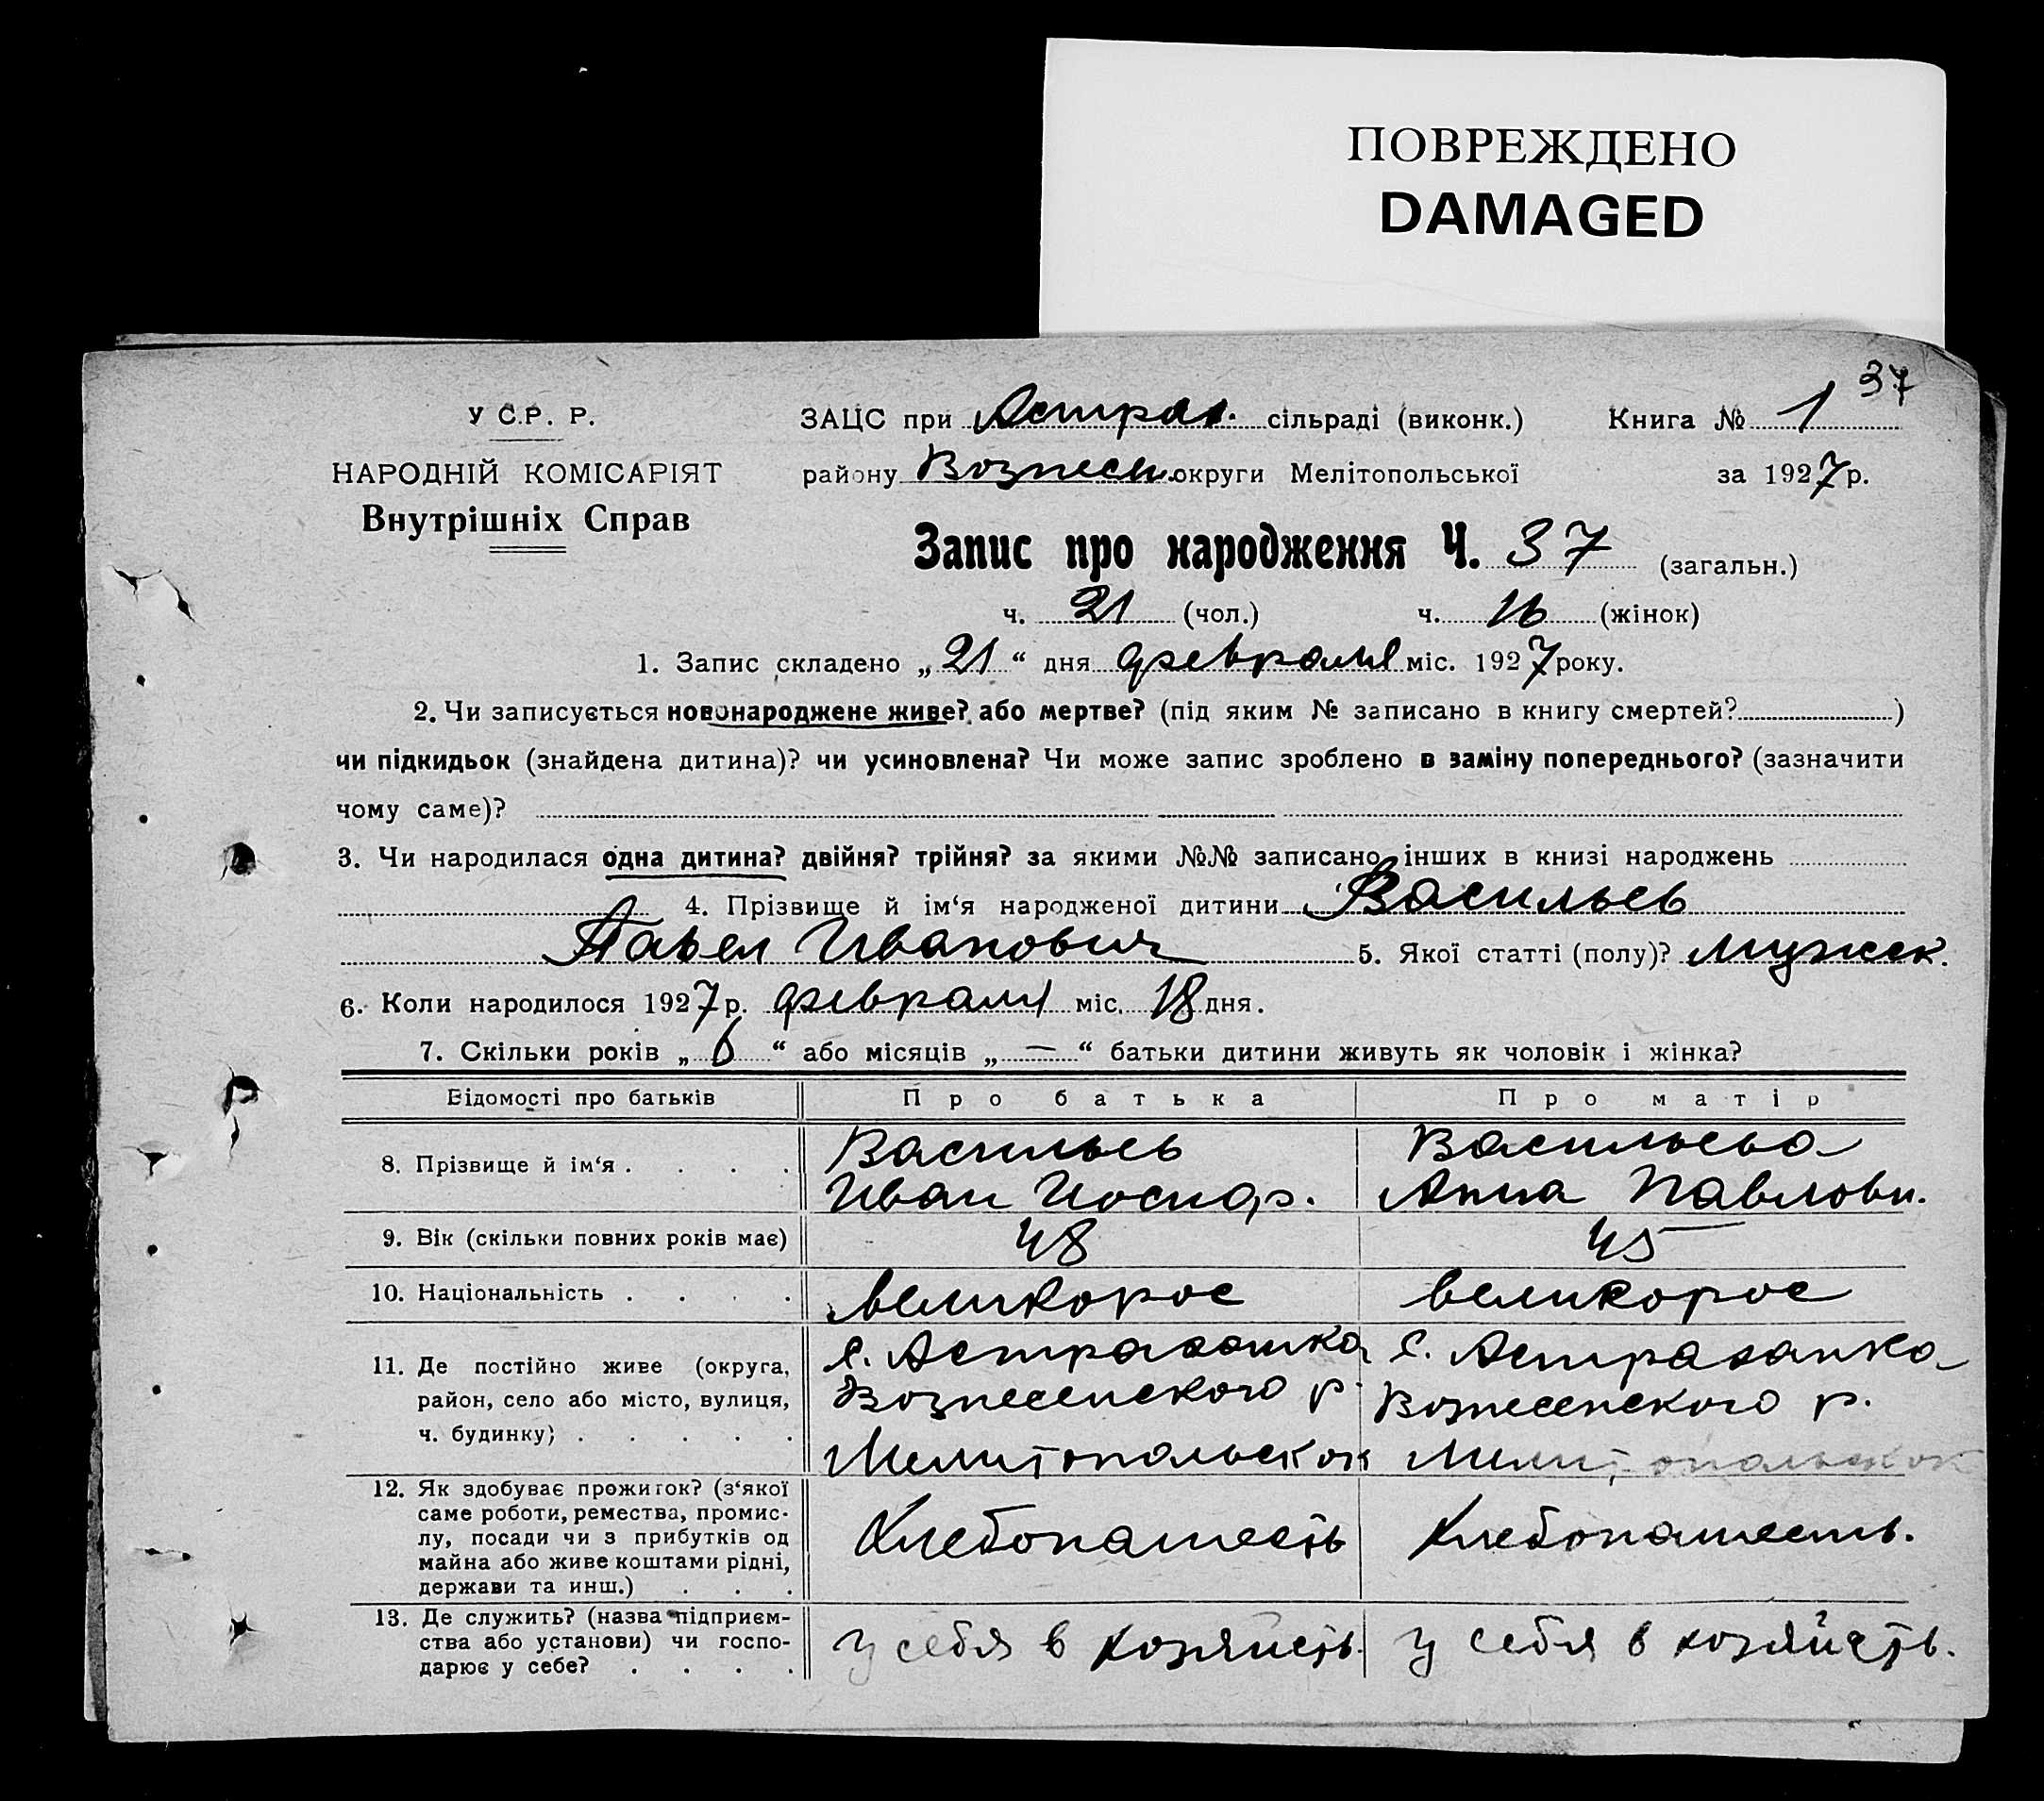 ПОВРЕЖДЕНО
DAMAGED
37
У С.Р. Р.
НАРОДНІЙ КОМІСАРІЯТ
Внутрішніх Справ
ЗАЦС при Астрах. сільраді (виконк.) Книга № 1
району Вознесен. округи Мелітопольської за 1927 р.
Запис про народження Ч. 37 (загальн.)
ч. 21 (чол.) ч. 16 (жінок)
1. Запис складено „21“ дня февраля міс. 1927 року.
2. Чи записується новонароджене живе? або мертве? (під яким № записано в книгу смертей? )
чи підкидьок (знайдена дитина)? чи усиновлена? Чи може запис зроблено в заміну попереднього? (зазначити
чому саме)?
3. Чи народилася одна дитина? двійня? трійня? за якими №№ записано інших в книзі народжень
4. Прізвище й ім‘я народженої дитини Васильев
Павел Иванович 5. Якої статті (полу)? мужск.
6. Коли народилося 1927 р. февраля міс. 18 дня.
7. Скільки років „6“ або місяців „—“ батьки дитини живуть як чоловік і жінка?
Відомості про батьків Про батька Про матір
8. Прізвище й ім‘я . . . . Васильев Васильева
Иван Иосиф. Анна Павловн.
9. Вік (скільки повних років має) 48 45
10. Національність . . . . великорос великорос
11. Де постійно живе (округа, с. Астраханка с. Астраханка
район, село або місто, вулиця, Вознесенского р. Вознесенского р.
ч. будинку) . . . . . Мелитопольской Мелитопольской
12. Як здобуває прожиток? (з‘якої
саме роботи, ремества, промис-
лу, посади чи з прибутків од Хлебопашеств Хлебопашеств.
майна або живе коштами рідні,
держави та инш.) . . .
13. Де служить? (назва підприєм-
ства або установи) чи госпо- у себя в хозяйств. у себя в хозяйств.
дарює у себе? . . . .